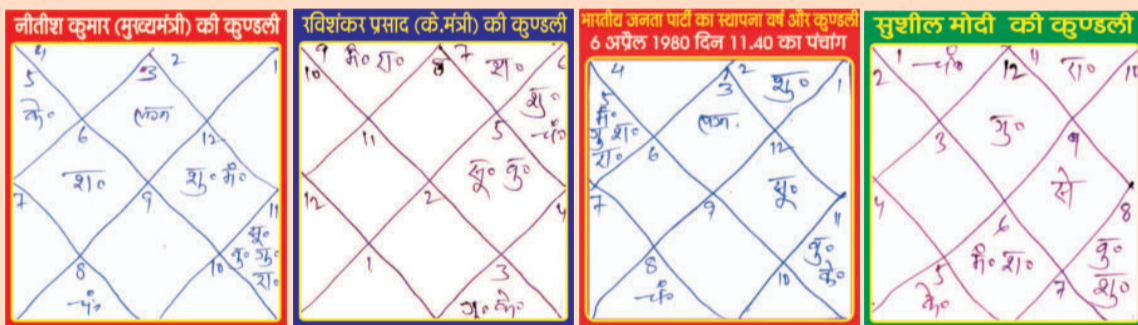 नीतीश कुमार (मुख्यमंत्री) की कुण्डली
4
3
2
1
5
के०
लग्न
6
12
श०
शु० मं०
7
9
11
सू०
बु० गु०
रा०
8
10
चं०
रविशंकर प्रसाद (के.मंत्री) की कुण्डली
9
मं० रा०
8
7
श०
6
10
शु०
चं०
11
5
सू० बु०
12
2
4
1
3
गु० के०
भारतीय जनता पार्टी का स्थापना वर्ष और कुण्डली
6 अप्रैल 1980 दिन 11.40 का पंचांग
4
3
2
शु०
1
5
मं०
गु० श०
रा०
लग्न
6
12
सू०
7
9
11
बु०
के०
8
10
चं०
सुशील मोदी की कुण्डली
1
चं०
12
रा०
2
गु०
3
9
4
6
8
मं० श०
बु०
शु०
5
के०
7